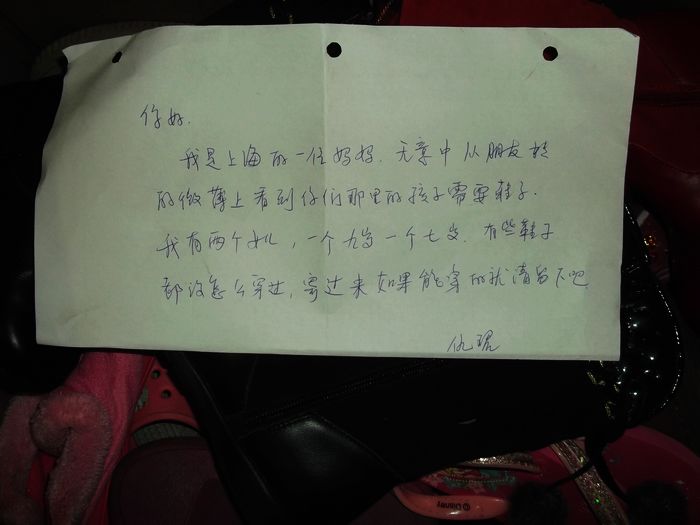 你好.
我是上海的一位妈妈. 无意中从朋友转
的微薄上看到你们那里的孩子需要鞋子.
我有两个女儿, 一个九岁一个七岁. 有些鞋子
都没怎么穿过, 寄过来如果能穿的就请留下吧
仇
© Disney